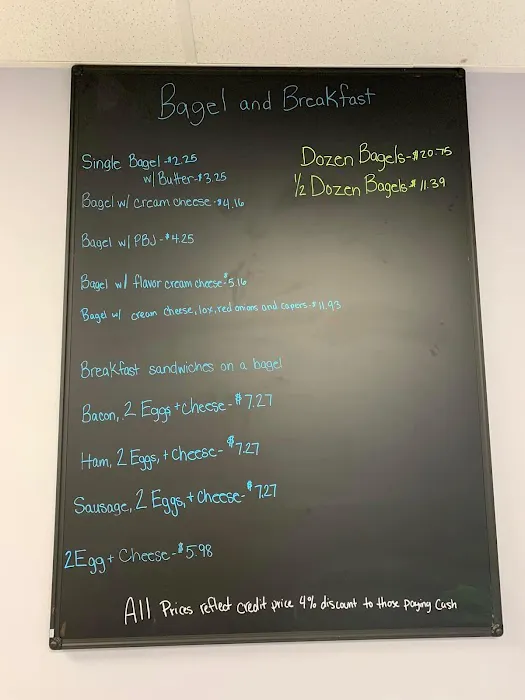 Bagel and Breakfast
Single Bagel - $2.25
w/ Butter - $3.25
Bagel w/ cream cheese - $4.16
Bagel w/ PBJ - $4.25
Bagel w/ flavor cream cheese - $5.16
Bagel w/ cream cheese, lox, red onions and capers - $11.93
Dozen Bagels - $20.75
1/2 Dozen Bagels $11.39
Breakfast sandwiches on a bagel
Bacon, 2 Eggs + Cheese - $7.27
Ham, 2 Eggs, + Cheese - $7.27
Sausage, 2 Eggs, + Cheese - $7.27
2 Egg + Cheese - $5.98
All Prices reflect credit price 4% discount to those paying Cash